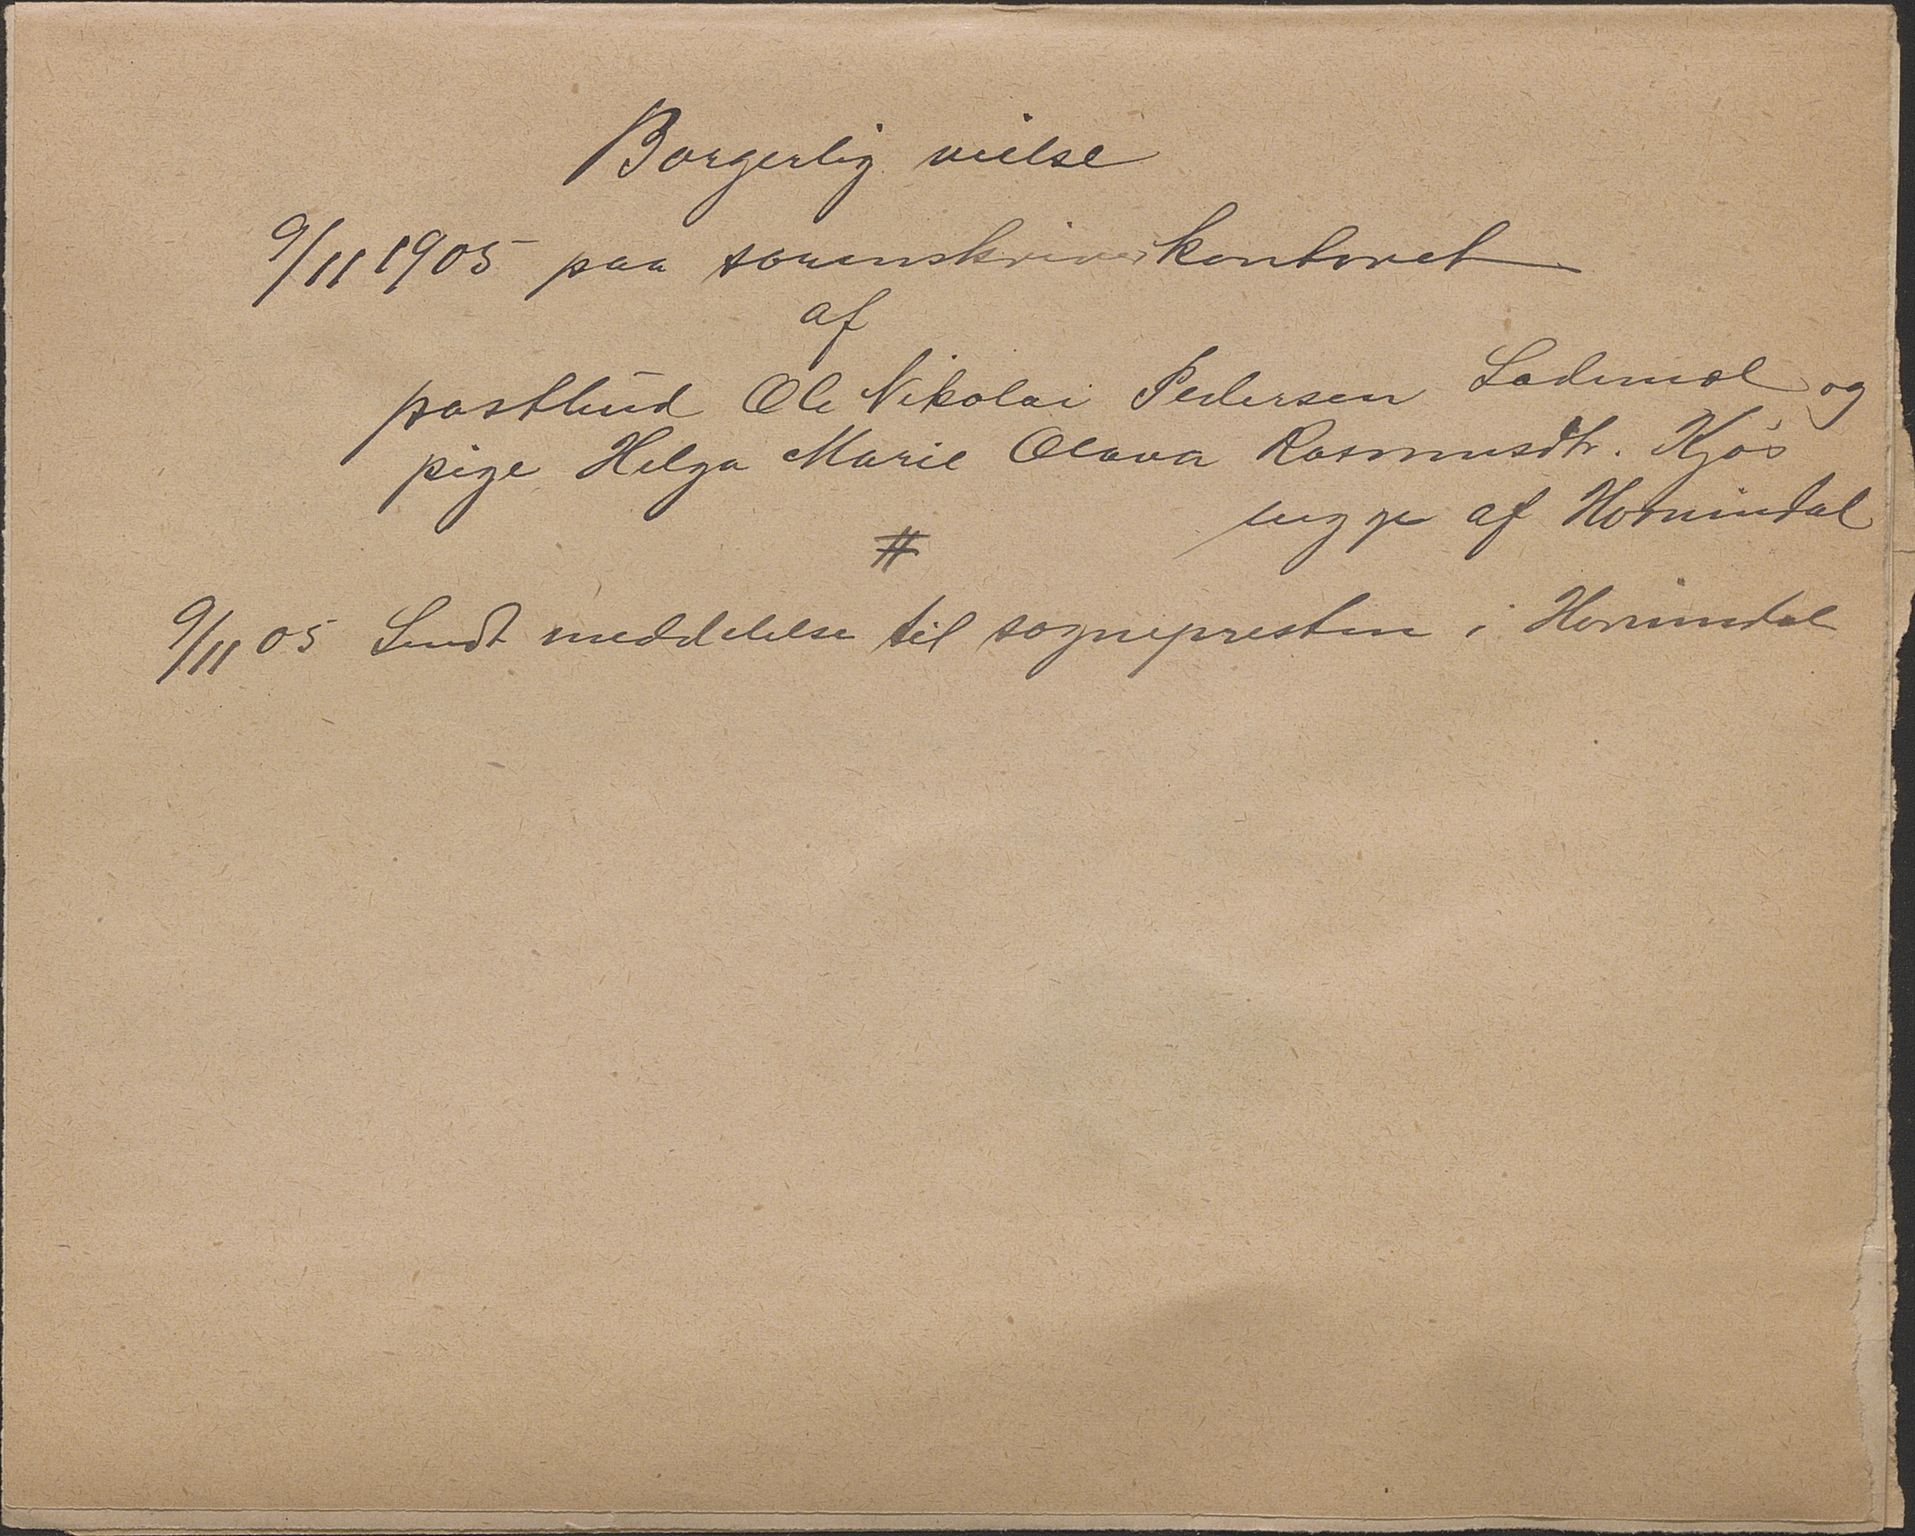 Borgerlig vielse
9/11 1905 paa sorenskriverkontoret
af
postbud Ole Nikolai Pedersen Lødemel og
pige Helga Marie Olava Rasmusdtr. Kjøs
begge af Hornindal
#
9/11 05 Sendt meddelelse til sognepresten i Hornindal